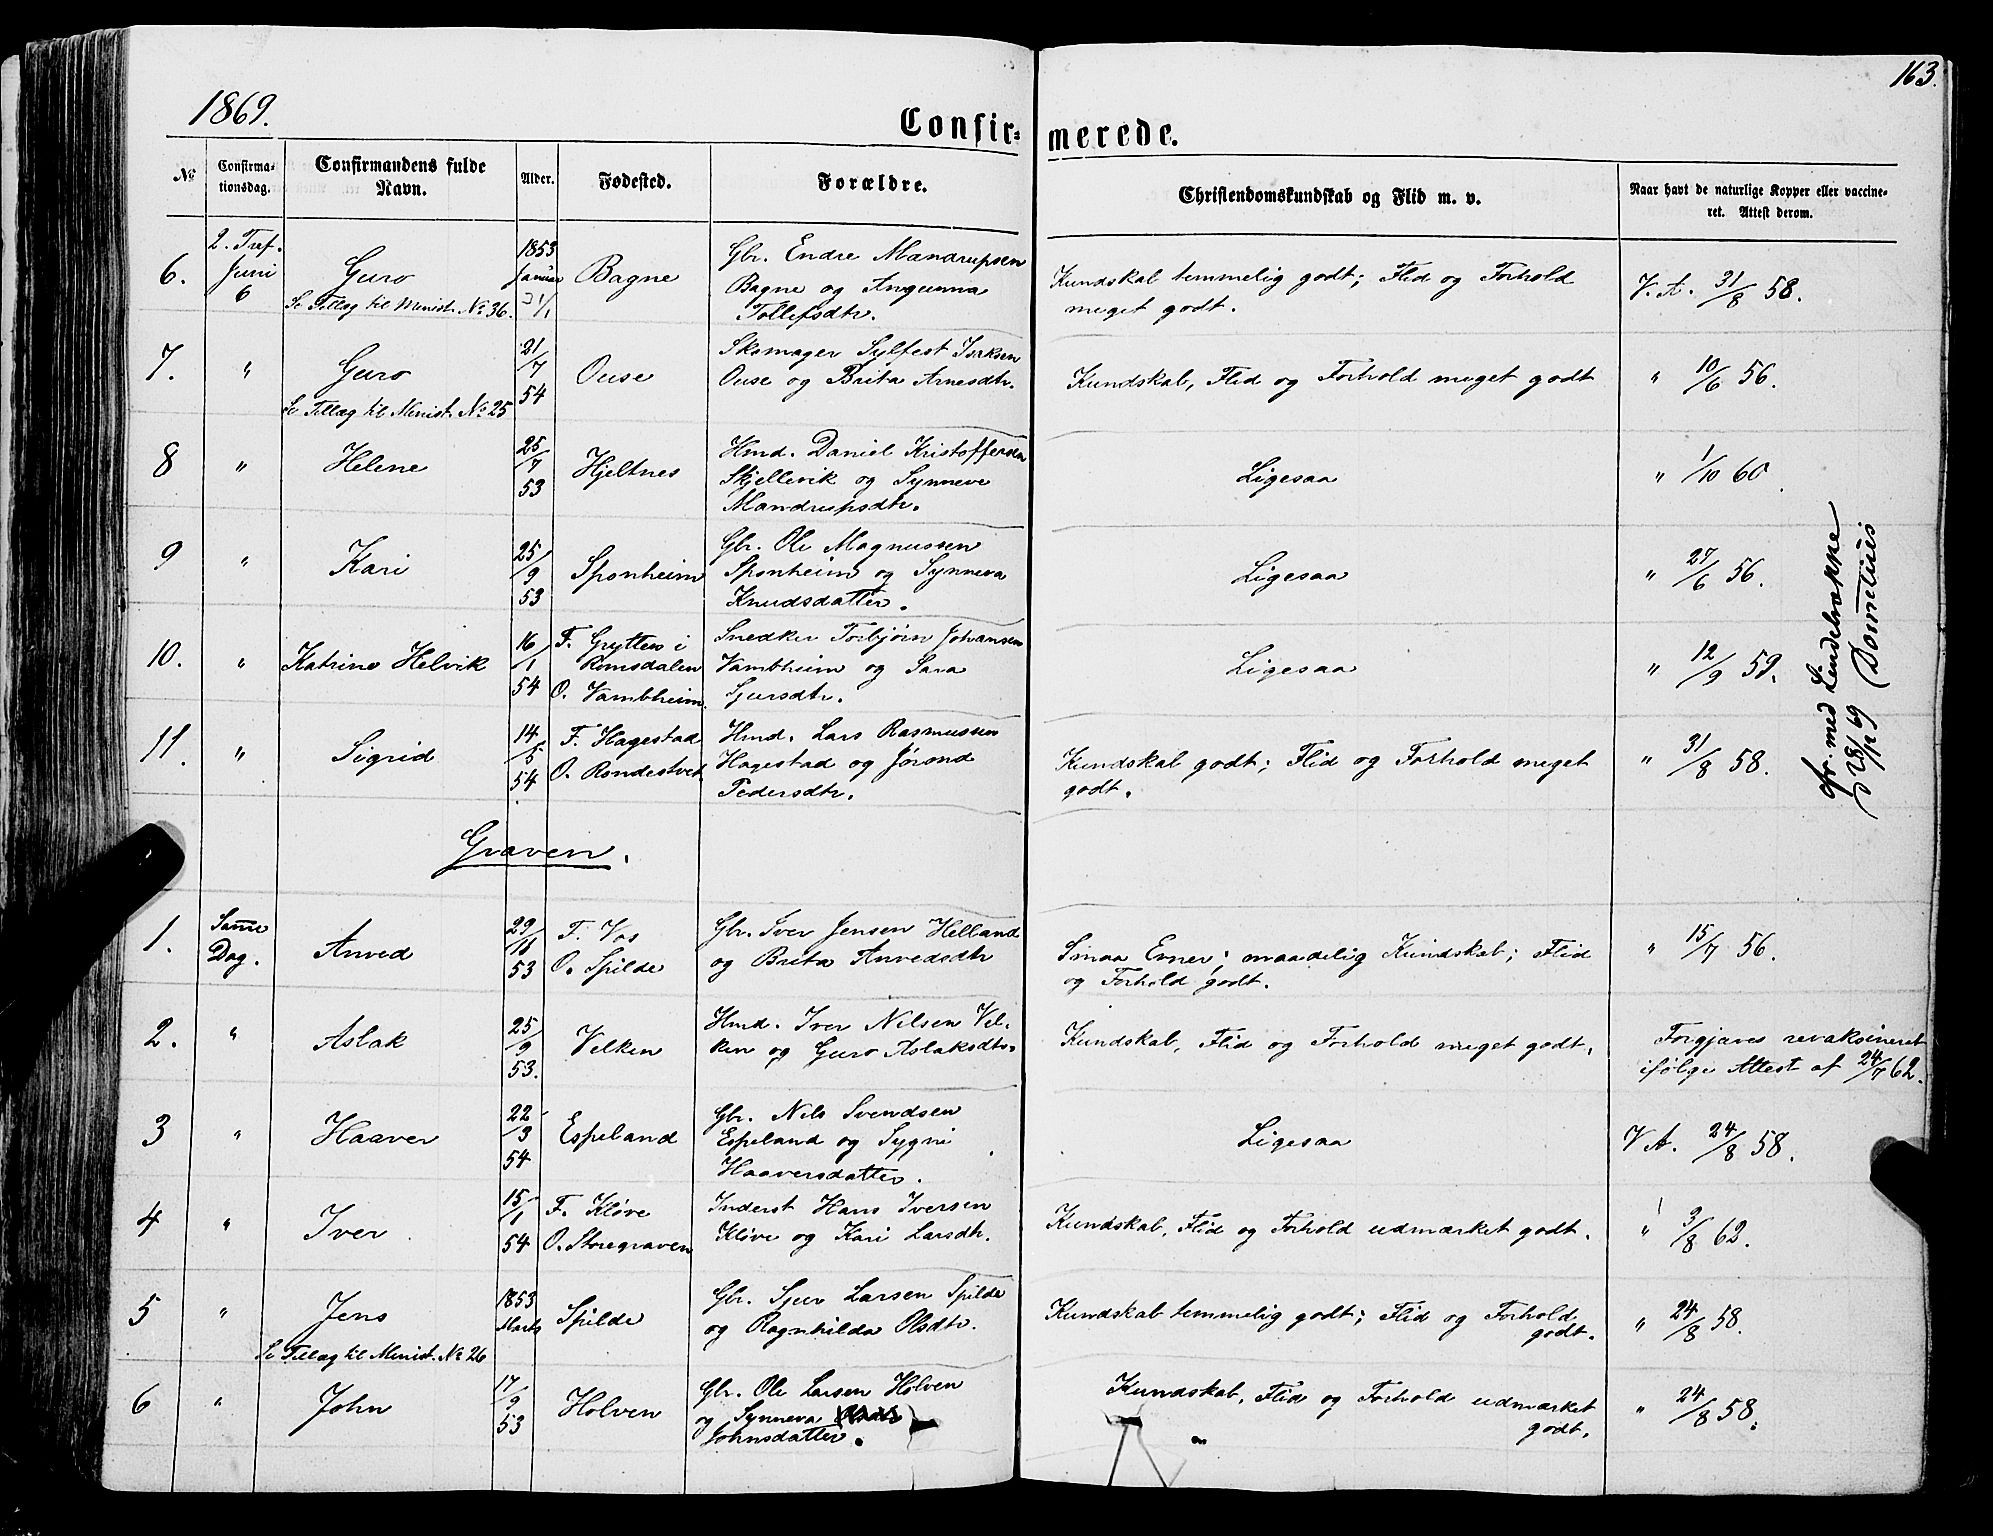 163.
1869.
Confir= merede.
№
Confirma=
tionsdag.
Confirmandens fulde
Navn.
Alder.
Fødested.
Forældre.
Christendomskundskab og Flid m. v.
Naar havt de naturlige Kopper eller vaccine=
ret. Attest derom.
6.
2. Tref.
Juni
6
Guro
Se Tillæg til Minist. No 36.
1853
Januar
31/1
Bagne
Gbr. Endre Mandrupsen
Bagne og Angunna
Tollefsdtr.
Kundskab temmelig godt; Flid og Forhold
meget godt.
V. A. 31/8 58.
7.
"
Guro
Se Tillæg til Minist. No 25
21/7
54
Ouse
Skomager Sylfest Isaksen
Ouse og Brita Arnesdtr.
Kundskab, Flid og Forhold meget godt
" 10/6 56.
8
"
Helene
25/7
53
Hjeltnes
Hmd. Daniel Kristoffersen
Skjellevik og Synneve
Mandrupsdtr.
Ligesaa
" 1/10 60
9
"
Kari
25/9
53
Sponheim
Gbr. Ole Magnussen
Sponheim og Synneva
Knudsdatter.
Ligesaa
" 27/6 56.
10.
"
Katrine Helvik
16/1
54
F. Grytten i
Romsdalen
O. Vambheim.
Snedker Torbjørn Johansen
Vambheim og Sara
Sjursdtr.
Ligesaa
" 12/9 59.
11.
"
Sigrid
14/5
54
F. Hagestad
O. Rondestvet
Hmd. Lars Rasmussen
Hagestad og Jørond
Pedersdtr.
Kundskab godt; Flid og Forhold meget
godt.
" 31/8 58.
Graven.
1.
Samme
Dag.
Anved
29/11
53
F. Vos
O. Spilde
Gbr. Iver Jensen Helland
og Brita Anvedsdtr
Smaa Evner; maadelig Kundskab; Flid
og Forhold godt.
" 15/7 56.
2.
"
Aslak
25/9
53.
Velken
Hmd. Iver Nilsen Vel-
ken og Guro Aslaksdtr.
Kundskab, Flid og Forhold meget godt.
Forgjæves revaksineret
ifølge Attest af 24/7 62.
3
"
Haaver
22/3
54
Espeland
Gbr. Nils Svendsen
Espeland og Sygni
Haaversdatter.
Ligesaa
V A. 24/8 58.
4
"
Iver
15/1
54
F. Kløve
O. Storegraven
Inderst Hans Iversen
Kløve og Kari Larsdtr.
Kundskab, Flid og Forhold udmærket godt.
" 3/8 62.
5
"
Jens
Se Tillæg til Minist. No 26
1853
Marts
Spilde
Gbr. Sjur Larsen Spilde
og Ragnhilda Olsdtr.
Kundskab temmelig godt; Flid og Forhold
godt.
" 24/8 58.
6
"
John
17/9
53
Holven
Gbr. Ole Larsen Holven
og Synneva
Johnsdatter.
Kundskab, Flid og Forhold udmærket
godt.
" 24/8 58.